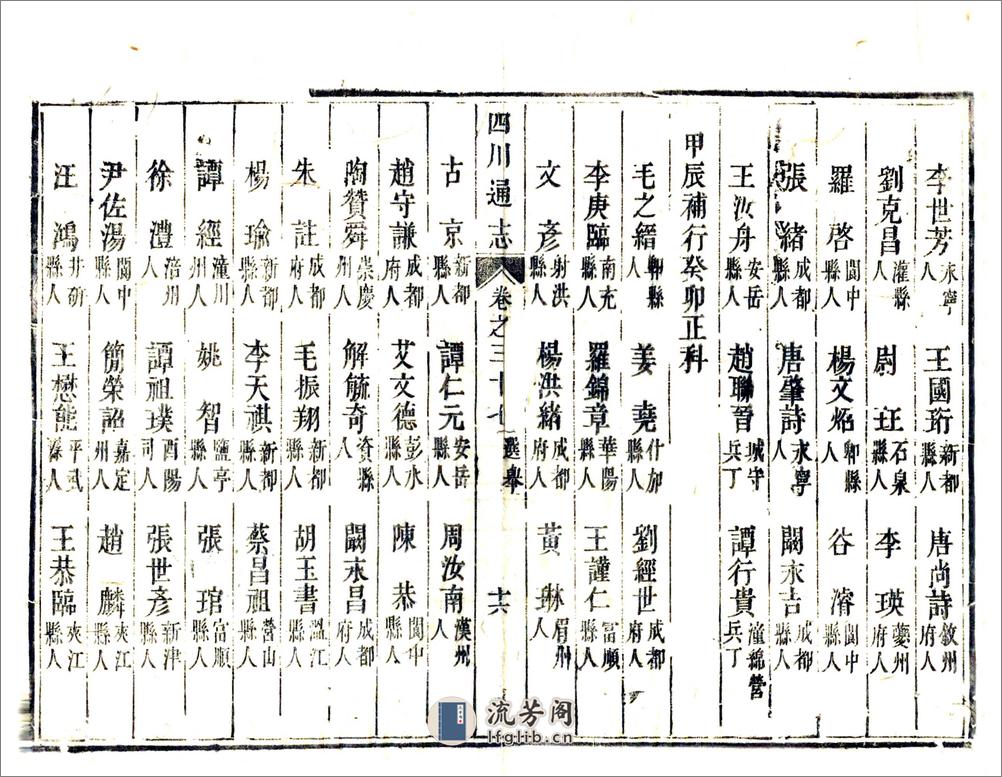 李世芳永寧人 王國珩新都縣人 唐尚詩敘州府人
劉克昌灌縣人 尉玨石泉縣人 李瑛夔州府人
羅啓閬中縣人 楊文炤郫縣人 谷濬閬中縣人
張緒成都縣人 唐肇詩永寧人 闞永吉成都縣人
王汝舟安岳縣人 趙聯晉城守兵丁 譚行貴潼綿營兵丁
甲辰補行癸卯正科
毛之縉郫縣人 姜堯什邡縣人 劉經世成都府人
李庚臨南充縣人 羅錦章華陽縣人 王謹仁富順縣人
文彥射洪縣人 楊洪緒成都府人 黃琳眉州人
四川通志 卷之三十七 選舉 十六
古京新都縣人 譚仁元安岳縣人 周汝南漢州人
趙守謙成都府人 艾文德彭水縣人 陳恭閬中縣人
陶贊舜崇慶州人 解毓奇資縣人 闞永昌成都府人
朱註成都府人 毛振翔新都縣人 胡玉書溫江縣人
楊瑜新都縣人 李天祺新都縣人 蔡昌祖營山縣人
譚經潼川州人 姚智鹽亭縣人 張琯富順縣人
徐澧涪州人 譚祖璞酉陽司人 張世彥新津縣人
尹佐湯閬中縣人 簡榮詔嘉定州人 趙麟夾江縣人
汪鴻井研縣人 王懋熊平武縣人 王恭臨夾江縣人
流芳阁
lfglib.cn